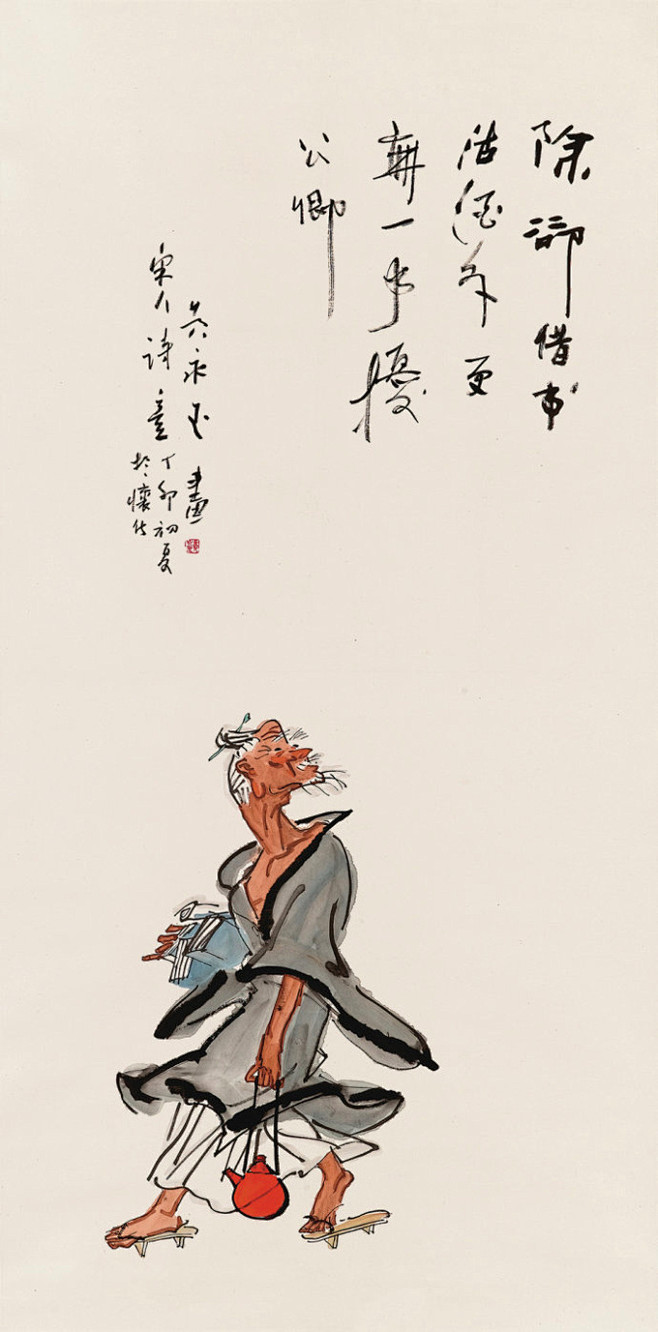 除卻借书
沽酒外更
無一事擾
公卿
黄永玉畫
宋人詩意丁卯初夏
於懷化